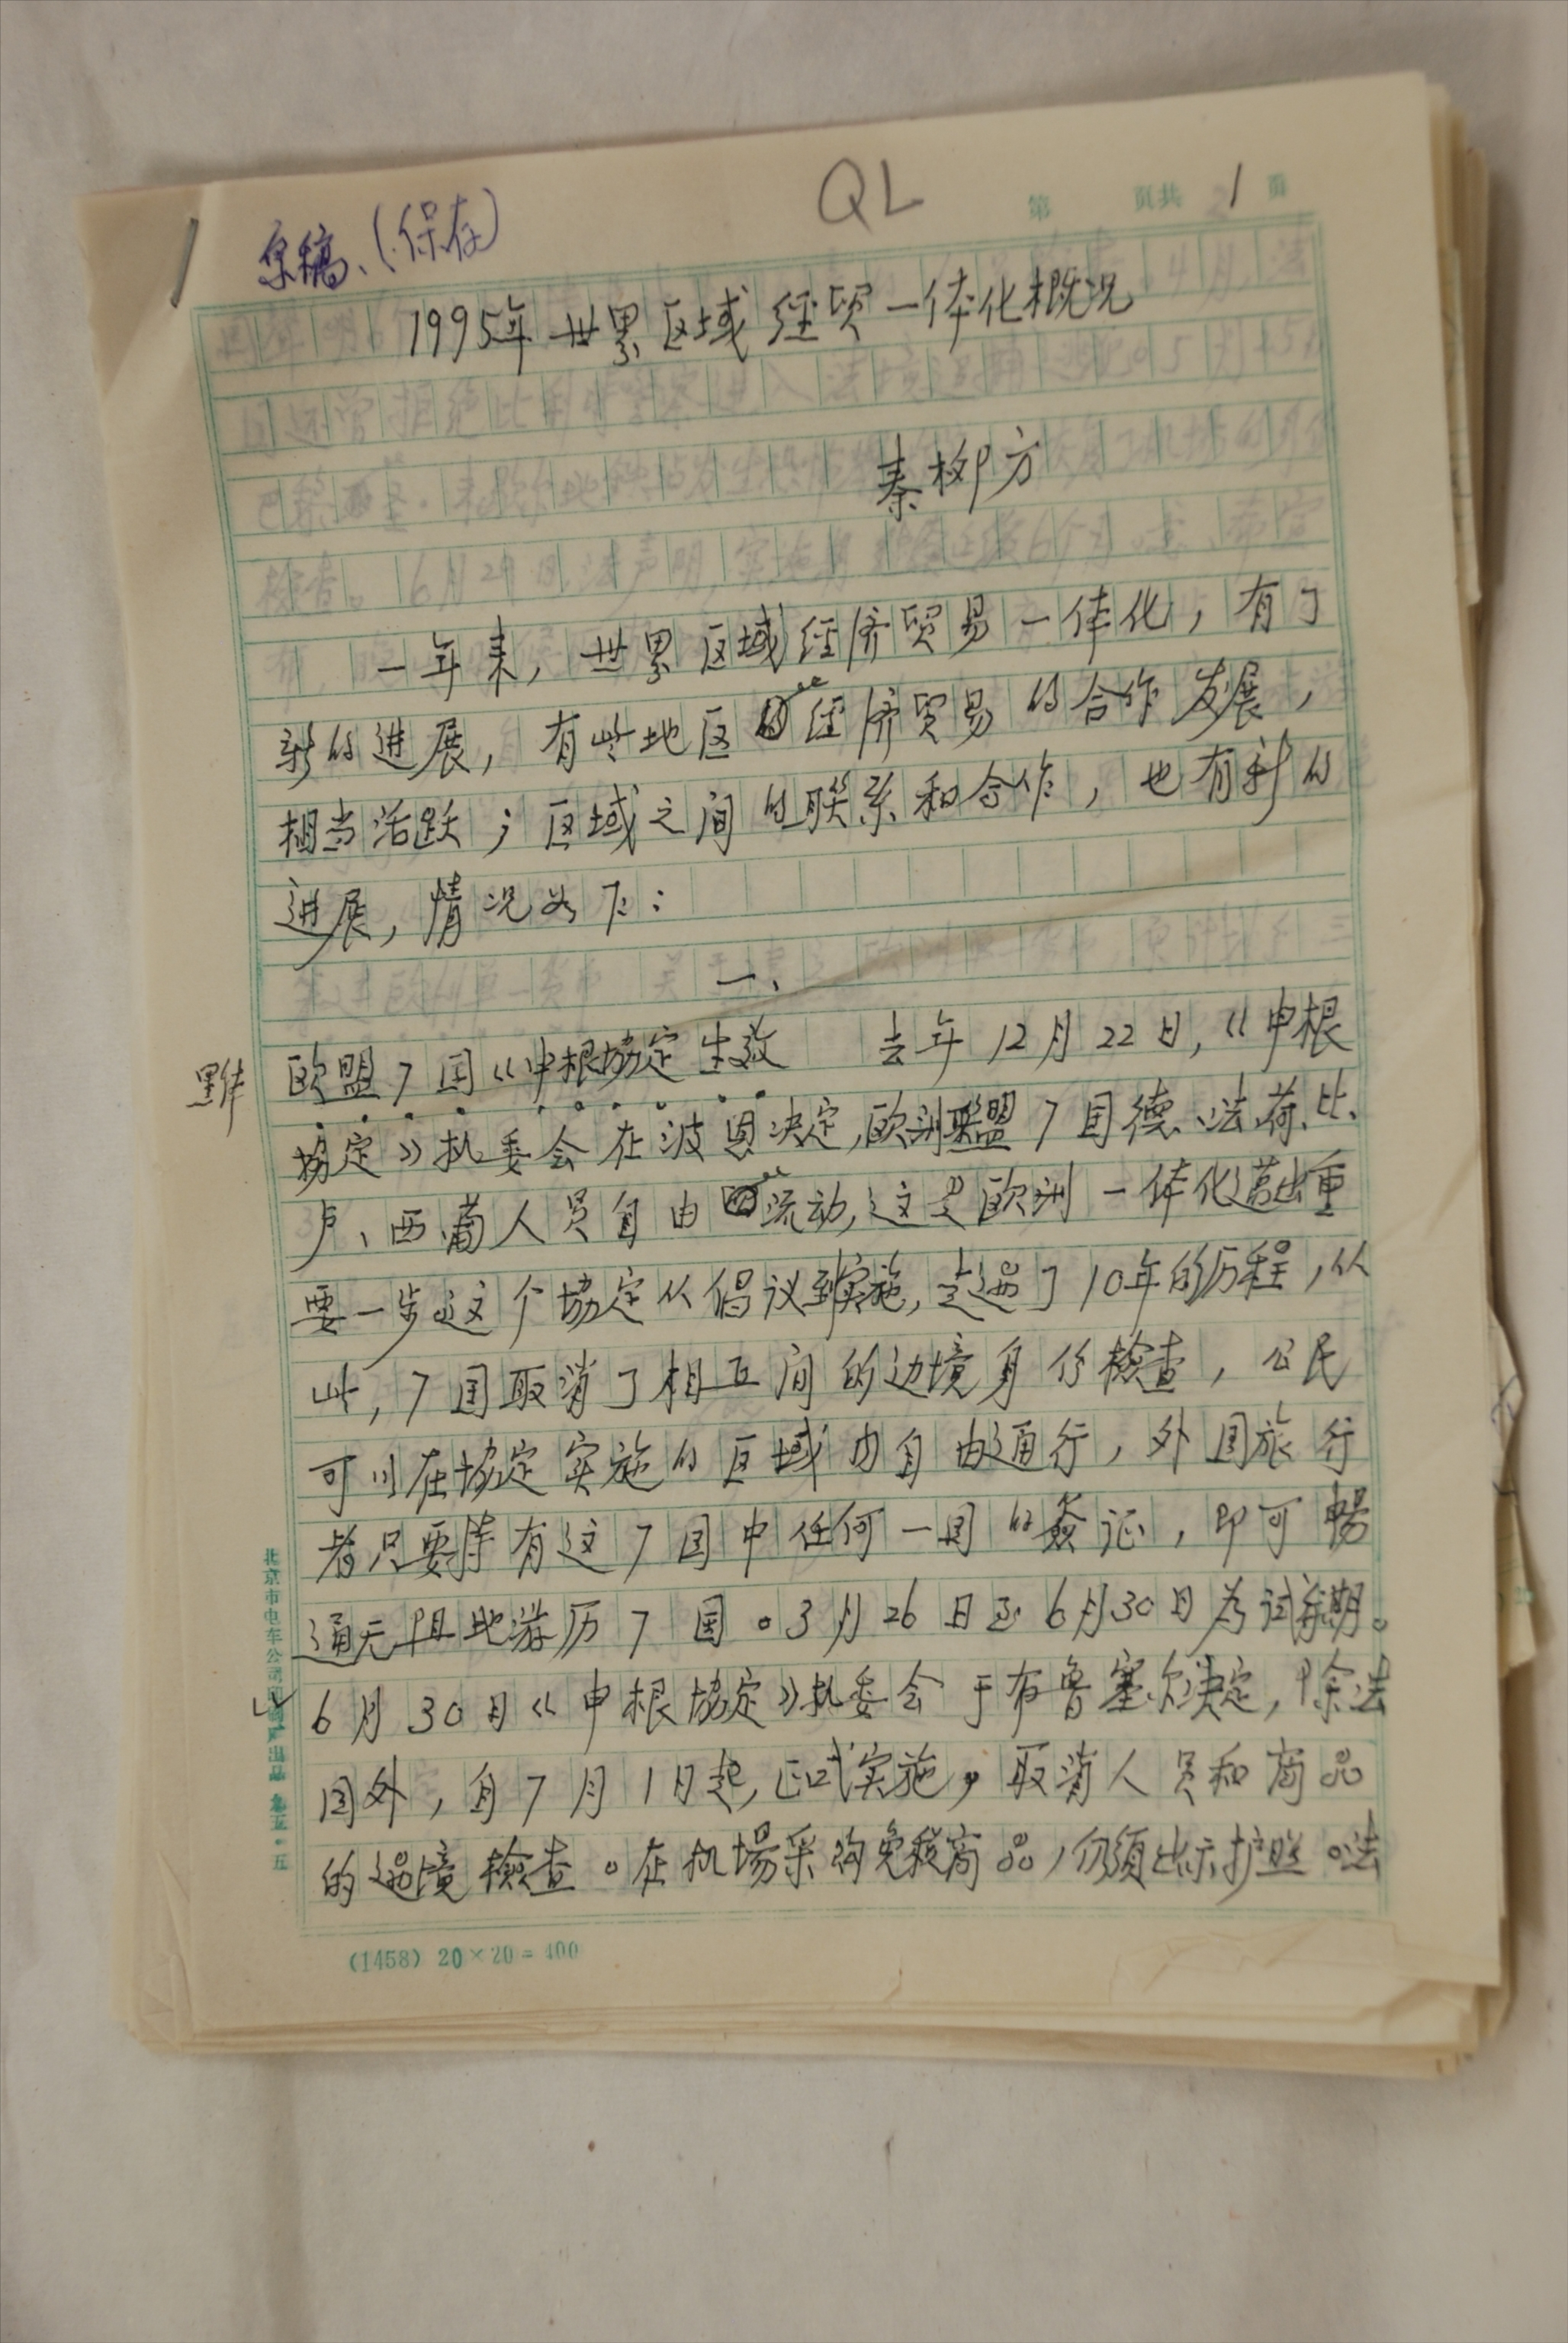 QL
第 页共 1 页
原稿、(保存)
1995年世界区域经贸一体化概况
秦柳方
一年来，世界区域经济贸易一体化，有了
新的进展，有些地区经济贸易的合作发展，
相当活跃；区域之间的联系和合作，也有新的
进展，情况如下：
一、
黑体
欧盟7国《申根协定生效 去年12月22日，《申根
协定》执委会在波恩决定，欧洲联盟7国德、法、荷、比、
卢、西、葡人员自由流动，这是欧洲一体化迈出重
要一步。这个协定从倡议到实施，走过了10年的历程，从
此，7国取消了相互间的边境身份检查，公民
可以在协定实施的区域内自由通行，外国旅行
者只要持有这7国中任何一国的签证，即可畅
通无阻地游历7国。3月26日至6月30日为试行期。
6月30日《申根协定》执委会于布鲁塞尔决定，除法
国外，自7月1日起，正式实施，取消人员和商品
的过境检查。在机场采购免税商品，仍须出示护照。法
北京市电车公司印刷厂出品 九五·五
(1458) 20×20=400